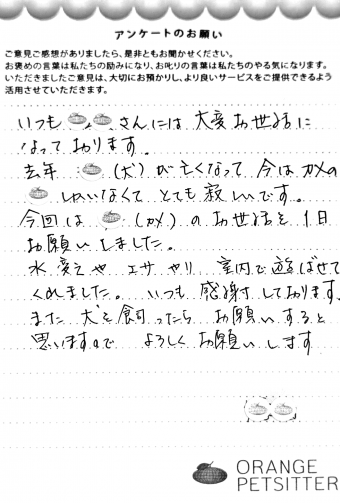 アンケートのお願い
ご意見ご感想がありましたら、是非ともお聞かせください。
お褒めの言葉は私たちの励みになり、お叱りの言葉は私たちのやる気になります。
いただきましたご意見は、大切にお預かりし、より良いサービスをご提供できるよう
活用させていただきます。
いつも さんには大変お世話に
なっております。
去年 (犬)が亡くなって今はカメの
しかいなくてとても寂しいです。
今回は (カメ)のお世話を1日
お願いしました。
水変えやエサやり 室内で遊ばせて
くれました。いつも感謝しております。
また犬を飼ったらお願いすると
思いますので よろしくお願いします
ORANGE
PETSITTER